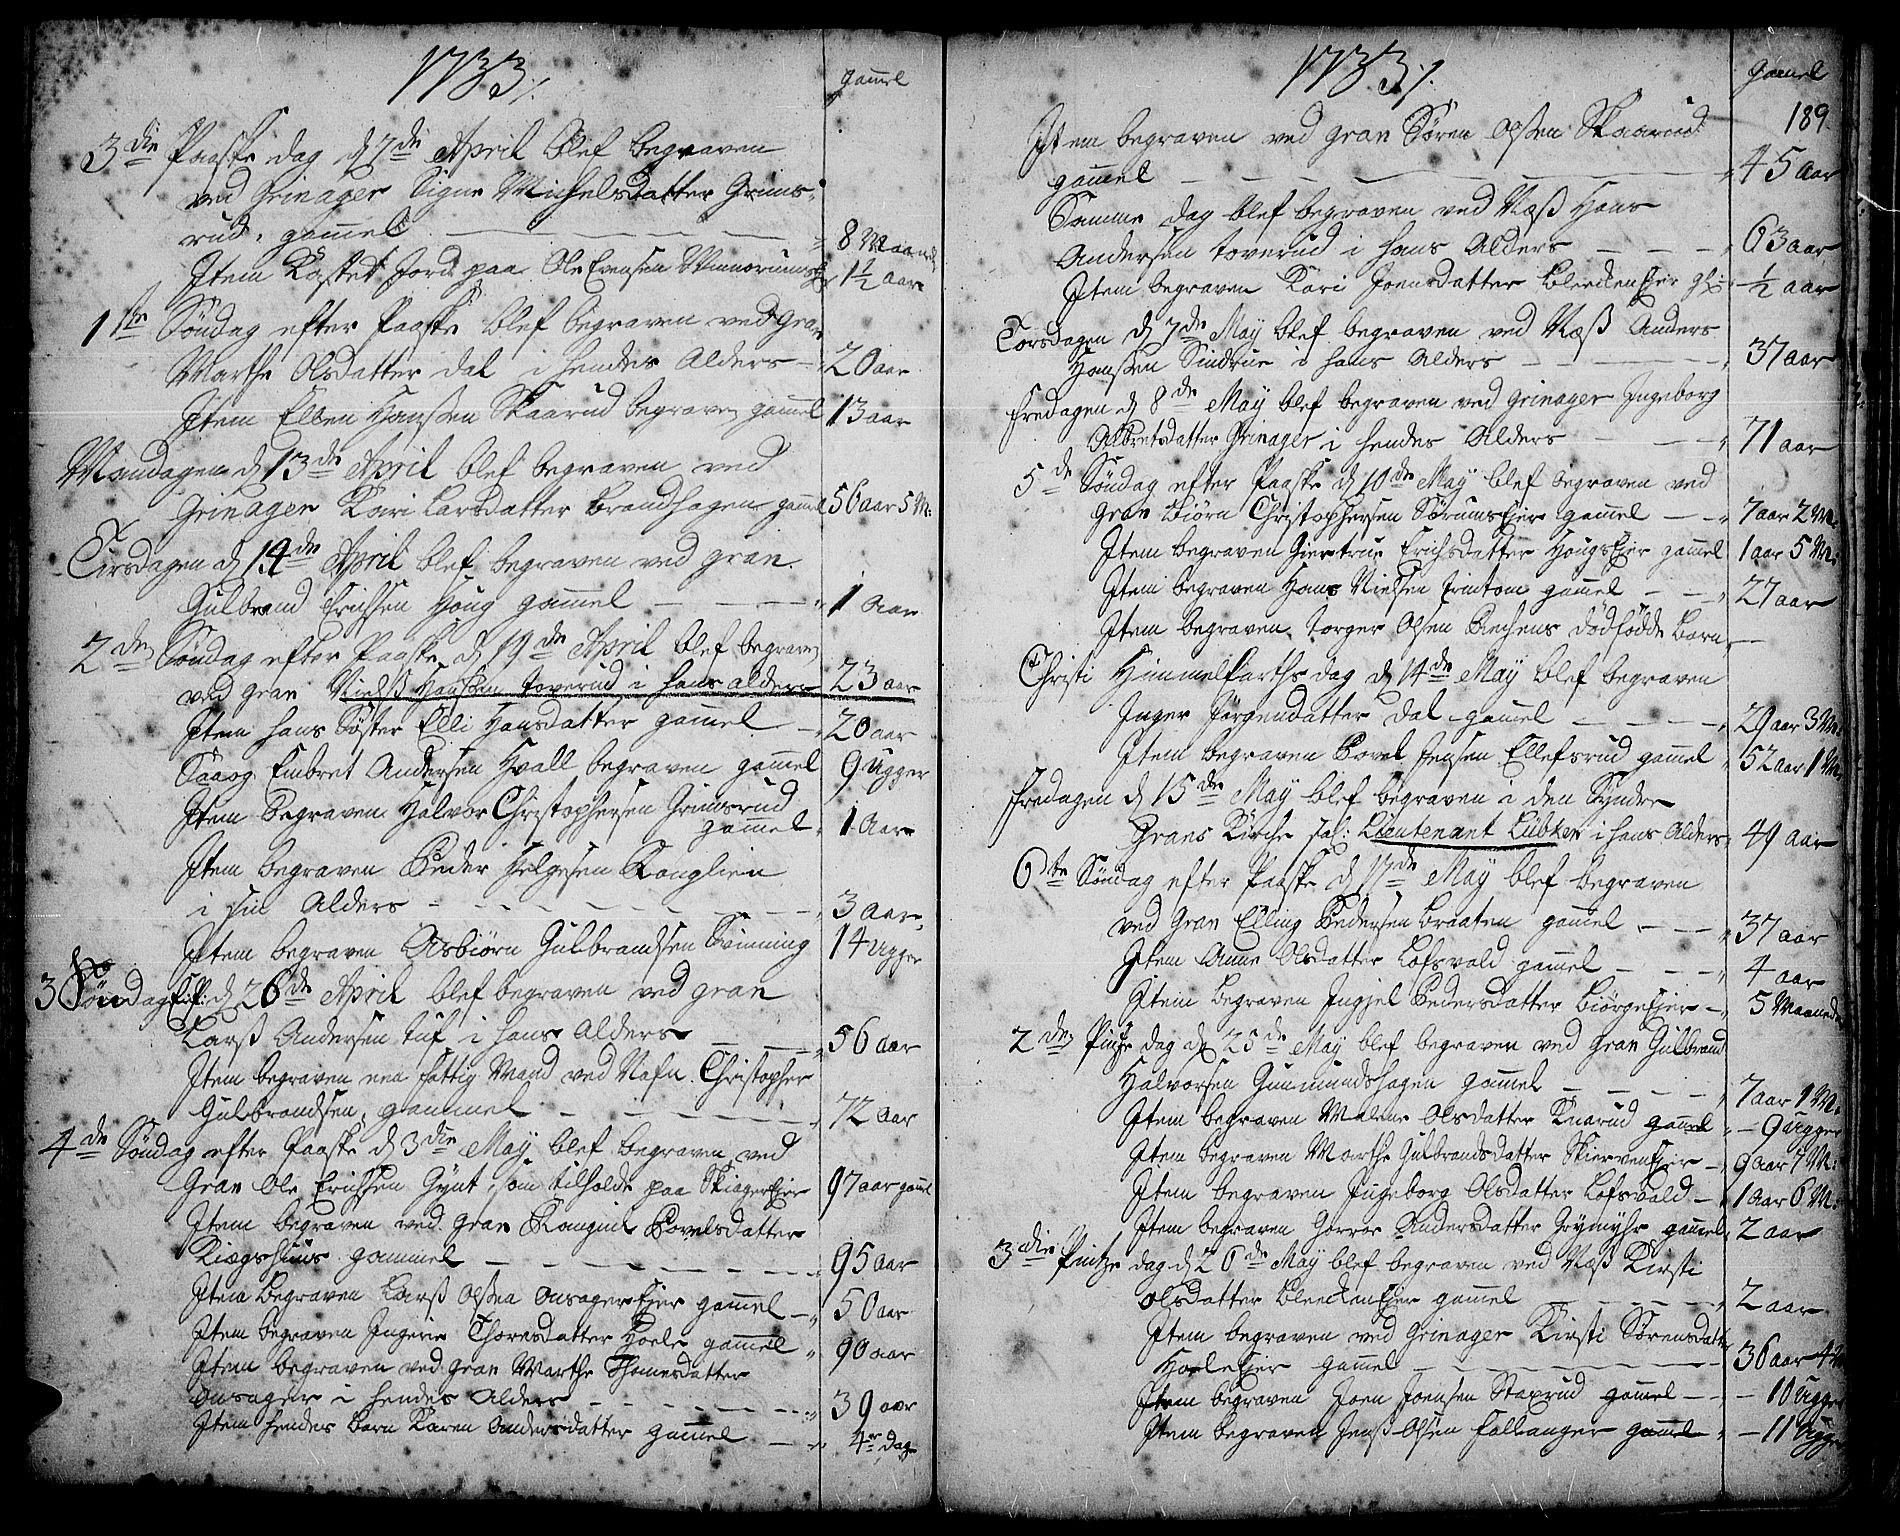 1733
gamel
3die Paaske dag d 7de April blef begraven
ved Grinager Signe Michelsdatter Grims-
rud. gamel 8 Maaneder
Item Kastet Jord paa Ole Evensen 1½ aar
1ste Søndag efter Paaske blef begraven ved Gran
Marthe Olsdatter Dal i hendes Alders 20 aar
Item Ellen Hanssen Skaarud begraven gamel 13 aar
Mandagen d 13de April blef begraven ved
Grinager Kari Larsdatter Brandshagen gamel 56 aar 5 M:
Tirsdagen d 14de April blef begraven ved gran
Gulbrand Erichsen Houg gamel 1 Aar
2den Søndag efter Paaske d 19de April blef begraven
ved gran Nielss Hanssen Toverud i hans alders 23 aar
Item hans Søster Elli Hansdatter gamel 20 aar
Saaog Embret Andersen Hvall begraven gamel 9 Ugger
Item Begraven Halvor Christophersen Grimsrud
gamel 1 Aar
Item begraven Peder Helgesen Kanglien
i sin Alders 3 Aar
Item begraven Asbiørn Gulbrandsen Svinning 14 Ugger
3 Søndag d 26de April blef begraven ved gran
Larss Andersen Tuf i hans Alders 56 aar
Item begraven een fattig Mand ved Nafn Christopher
Gulbrandsen, gammel 72 aar
4de Søndag efter Paaske d 3die May blef begraven ved
Gran Ole Erichsen Gynt, som tilholdt paa SkiagerEjer 97 aar gamel
Item begraven ved Gran Rangnil Povelsdatter
Kiægshuus gammel 95 aar
Item Begraven Larss Olssen OnsagerEjer gamel 50 aar
Item begraven Ingerie Thoresdatter Hoele gamel 90 aar
Item begraven ved gran Marthe Thomesdatter
Onsager i hendes Alders 39 aar
Item hendes barn Karen Andersdatter gamel 4re dage
1733
gamel
189
Item begraven ved gran Søren Olssen Skaarud
gamel 45 aar
Samme dag blef begraven ved Næss Hans
Andersen Toverud i hans Alders 63 aar
Item begraven Kari Joensdatter BleckenEjer ½ aar
Torsdagen d 7de May blef begraven ved Næss Anders
Hanssen Sindrue i hans Alders 37 aar
fredagen d 8de May blef begraven ved Grinager Ingeborg
Albretsdatter Grinager i hendes Alders 71 aar
5de Søndag efter Paaske d 10de May blef begraven ved
Gran Biørn Christophersen SørumsEjer gamel 7 aar 2 M:
Item begraven Giertrue Erichsdatter HougsEjer gamel 1 aar 5 M:
Item begraven Hans Nielsen gamel 27 aar
Item begraven Torger Olsen dødfødde barn
Christi Himmelfarths dag d 14de May blef begraven
Inger Jørgendatter Dal gamel 29 aar 3 M:
Item begraven Povel Jensen Ellefsrud gamel 52 aar 1 M:
fredagen d 15de May blef begraven i den Syndre
Grans Kirche sal: Lieutenant Lübker i hans Alders 49 aar
6te Søndag efter Paaske d 17de May blef begraven
ved Gran Elling Pedersen Braaten gamel 37 aar
Item Anne Olsdatter Lofsvald gamel 4 aar
Item begraven Ingjel Pedersdatter BiørgeEjer 5 Maaneder
2den Pintze dag d 25de May blef begraven ved Gran Gulbrand
Halvorsen Gunnundshagen gamel 7 aar 1 M:
Item begraven Malene Olsdatter Knarud gamel 9 Ugger
Item begraven Marthe Gulbrandsdatter SkiervenEjer 9 aar 7 M:
Item begraven Ingeborg Olsdatter Lofsvald 1 Aar 6 M:
Item begraven Gorroe Andersdatter Grymyhr gamel 2 aar
3die Pintze dag d 26de May blef begraven ved Næss Kirsti
Olsdatter BleckenEjer gamel 2 aar
Item begraven ved Grinager Kirsti Sørensdatter
HoeleEjer gamel 36 aar 4 M
Item begraven Joen Joensen Staxrud gamel 10 Ugger
Item begraven Jenss Olsen Fallanger gamel 11 Ugger